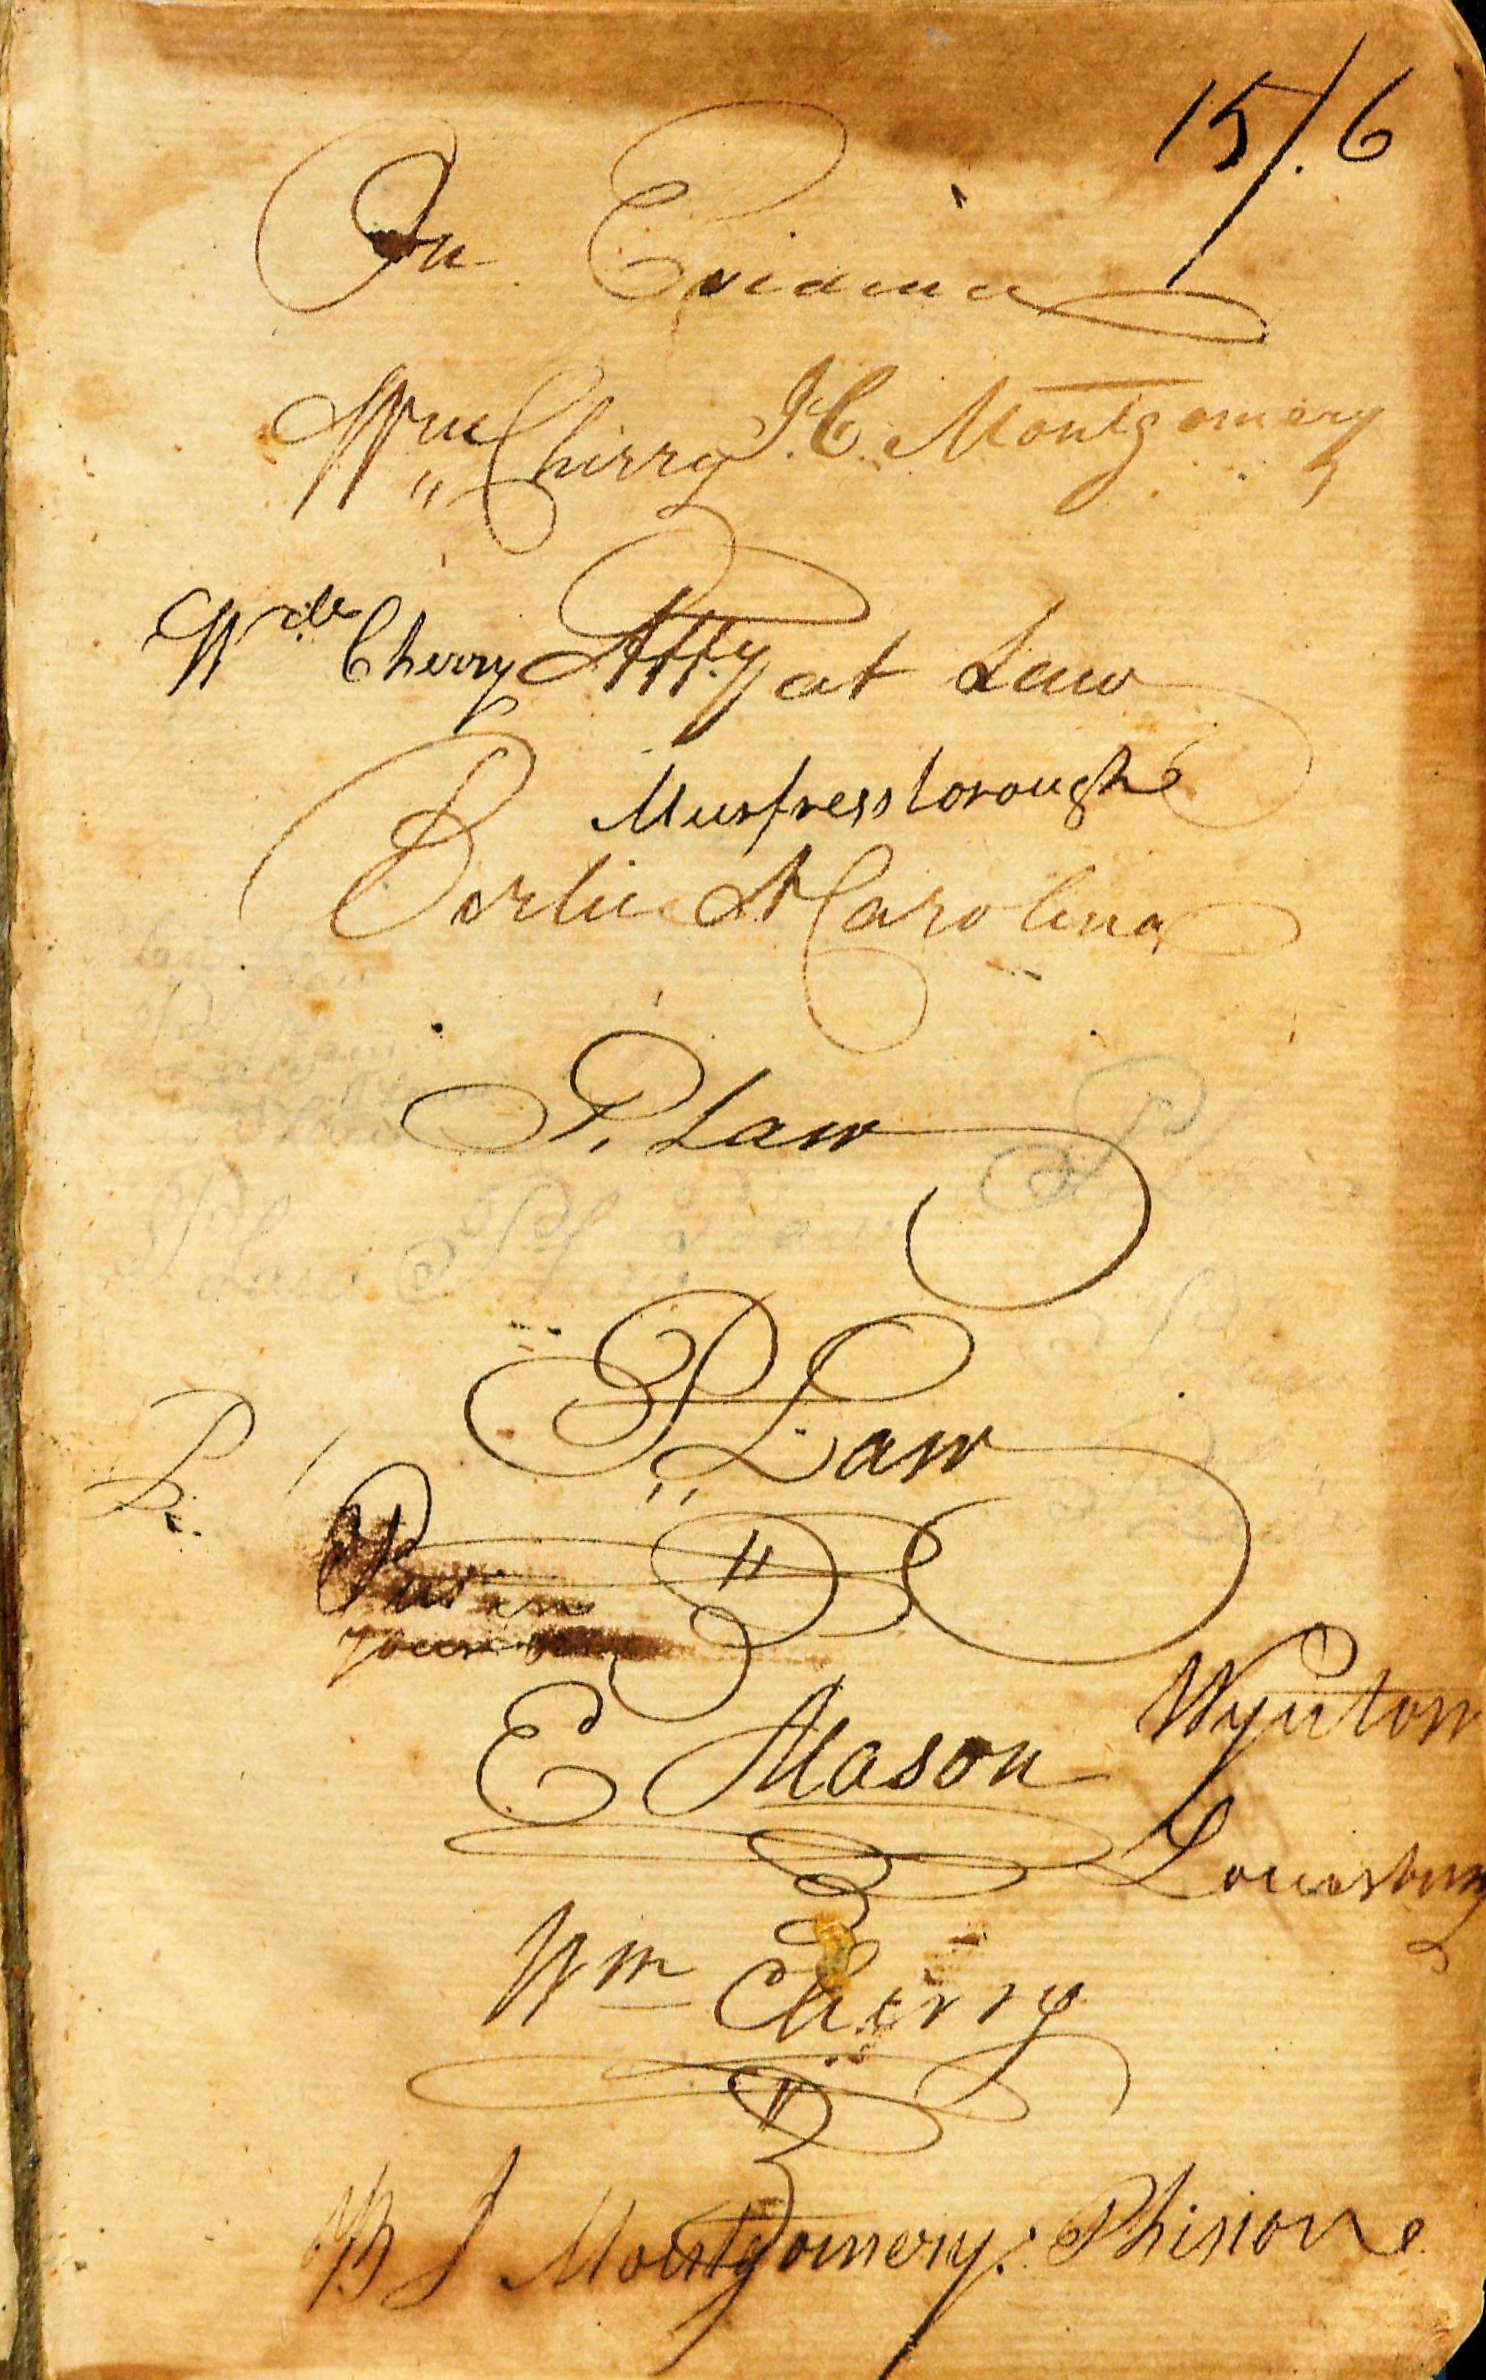 15/.6
On Evidence
Wm Cherry J.C. Montgomery
Cherry Atty at Law
Murfressborough
Bertie N Carolina
P. Law
P Law
P.
your
E Mason
Wynton
Louisburg
Wm Cherry
J Montgomery. Phision